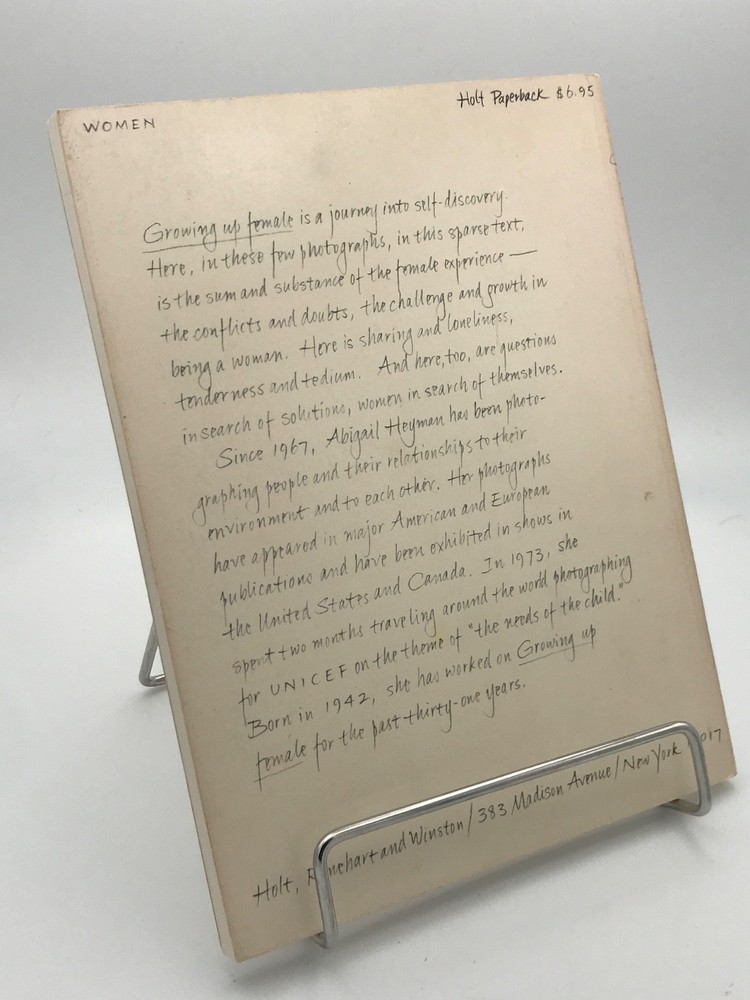 WOMEN
Holt Paperback $6.95
Growing up female is a journey into self-discovery.
Here, in these few photographs, in this sparse text,
is the sum and substance of the female experience —
the conflicts and doubts, the challenge and growth in
being a woman. Here is sharing and loneliness,
tenderness and tedium. And here, too, are questions
in search of solutions, women in search of themselves.
Since 1967, Abigail Heyman has been photo-
graphing people and their relationships to their
environment and to each other. Her photographs
have appeared in major American and European
publications and have been exhibited in shows in
the United States and Canada. In 1973, she
spent two months traveling around the world photographing
for UNICEF on the theme of "the needs of the child."
Born in 1942, she has worked on Growing up
female for the past thirty-one years.
Holt, and Winston / 383 Madison Avenue / New York